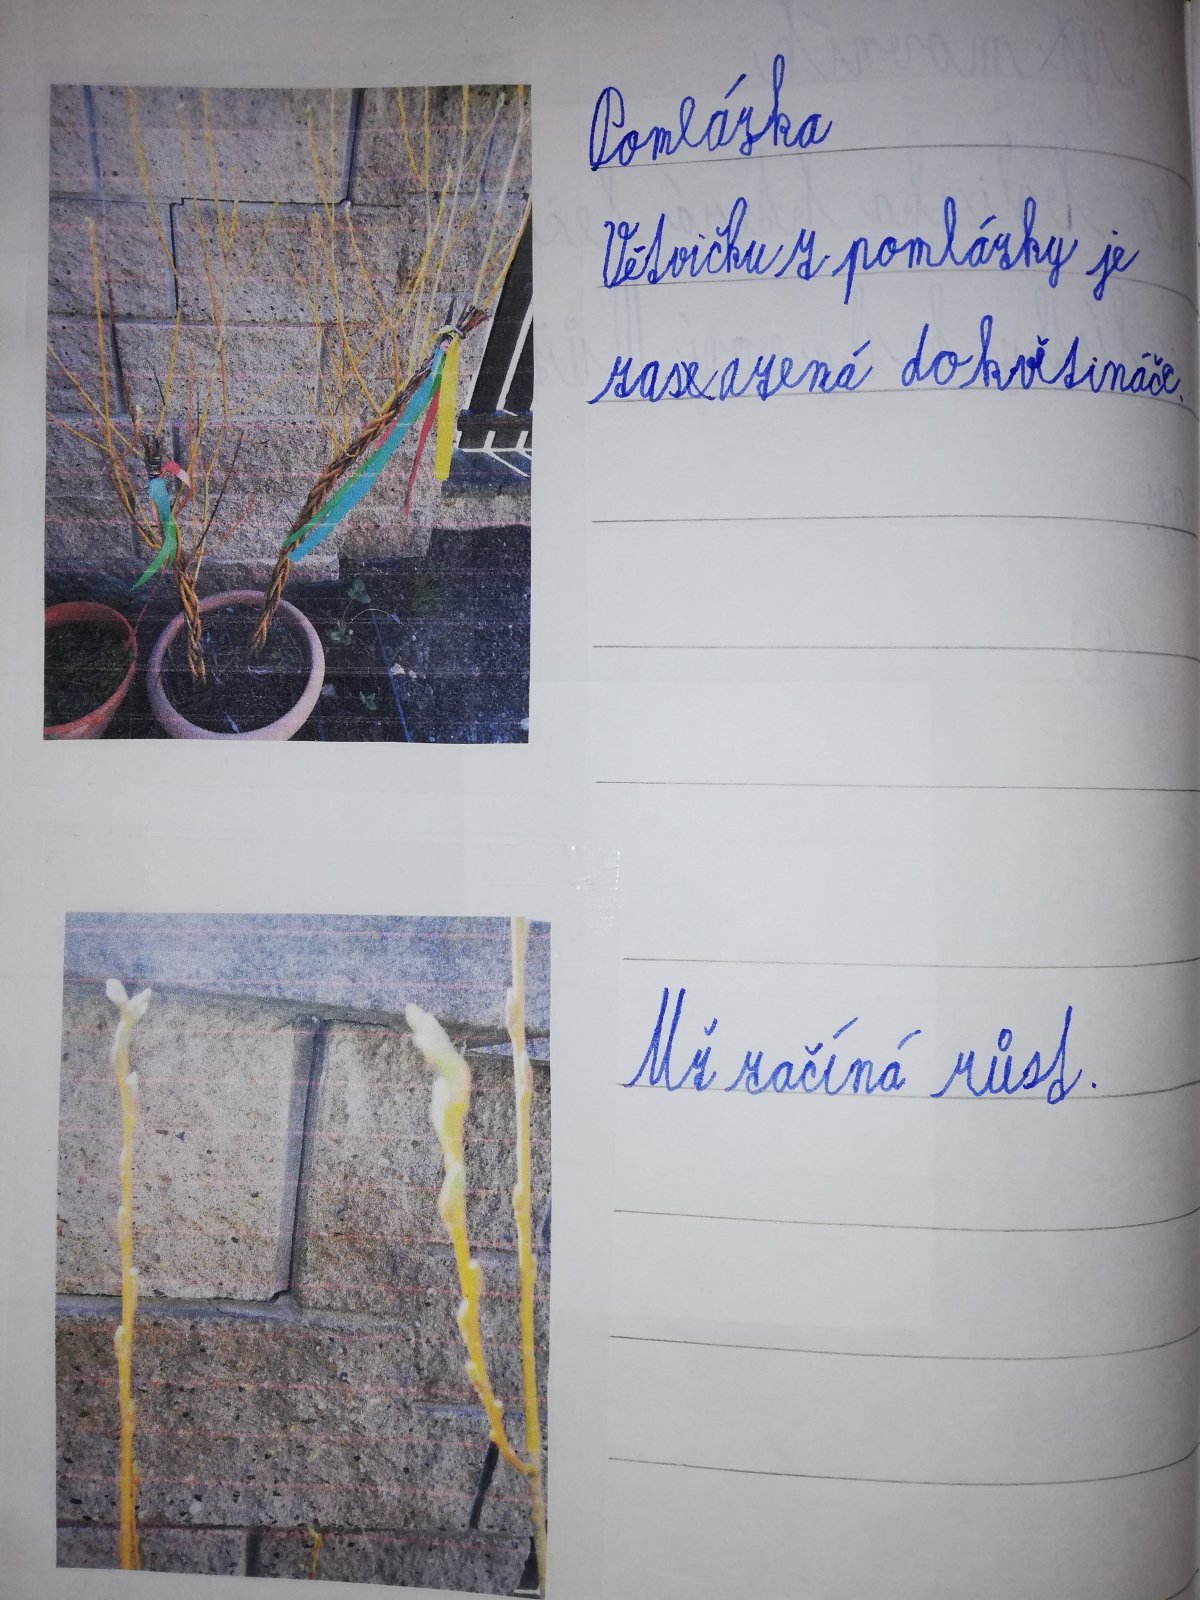 Pomlázka
Větvičku z pomlázky je
zasazená do květináče.
Už začíná růst.